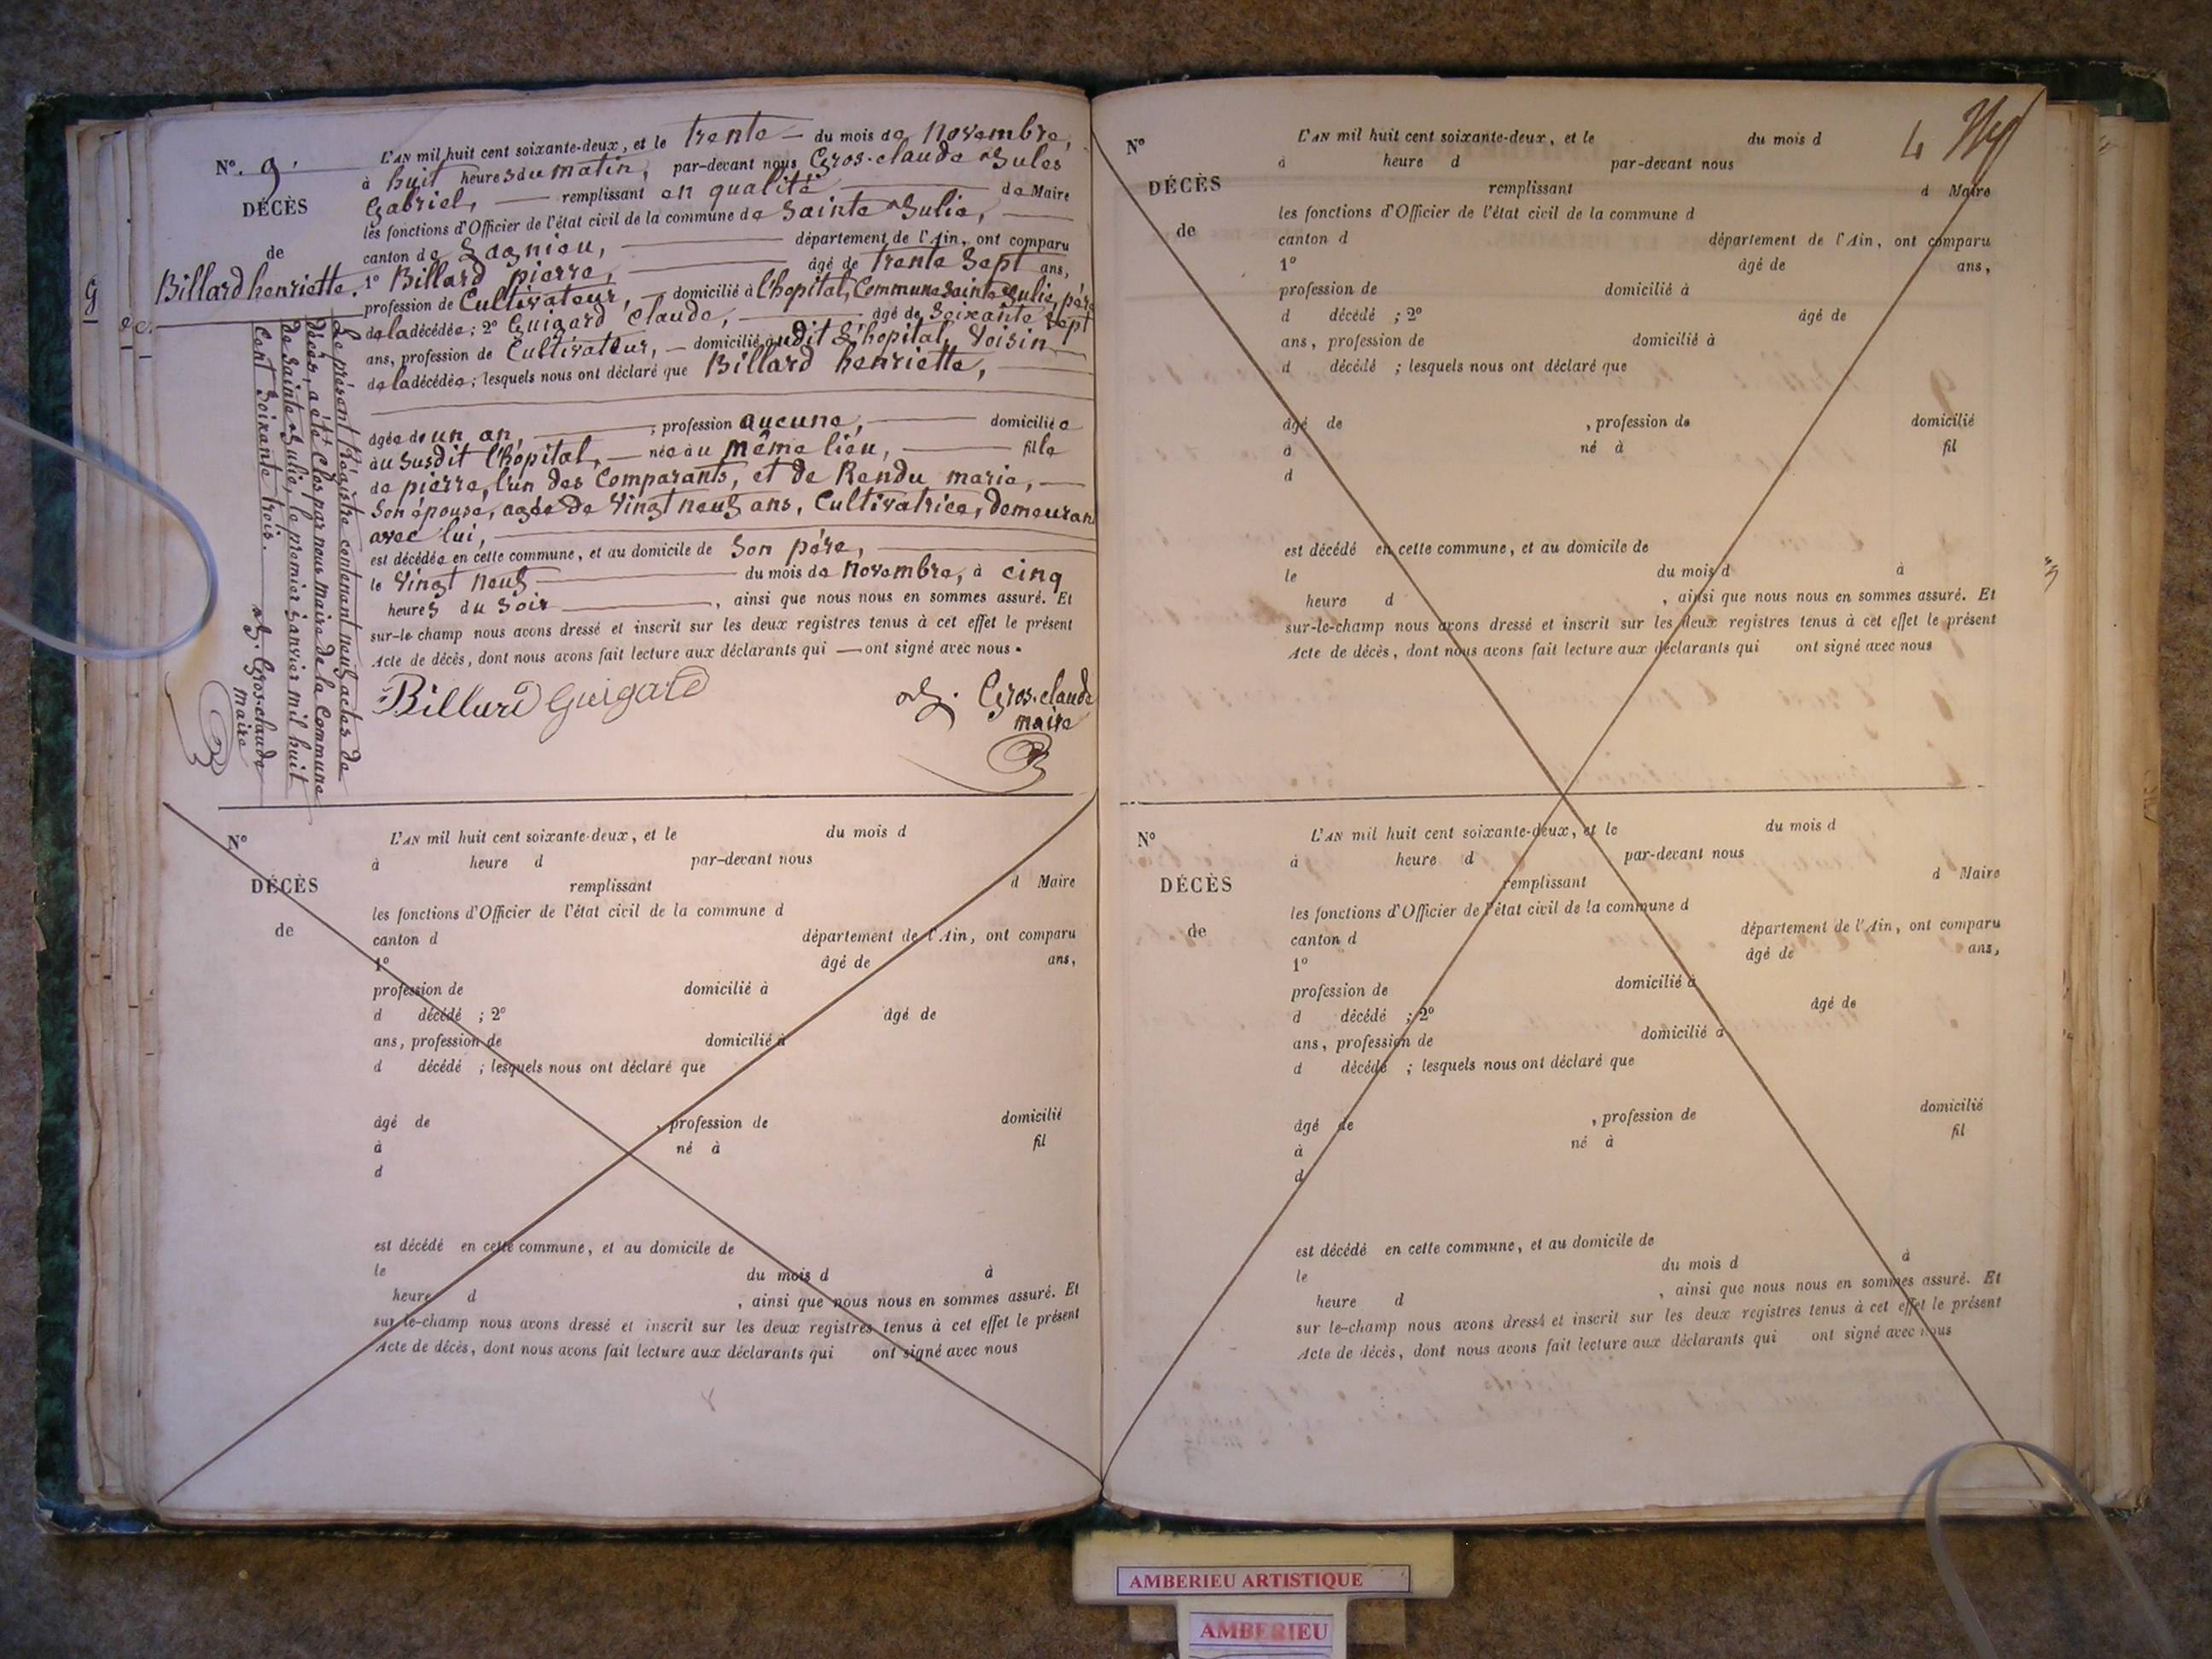 N°. 9.
DÉCÈS
de
Billard henriette.
L'AN mil huit cent soixante-deux, et le trente — du mois de Novembre,
à huit heures du matin, par-devant nous Gros-claude Jules
Gabriel, — remplissant en qualité — de Maire
les fonctions d'Officier de l'état civil de la commune de Sainte Julie, —
canton de Lagnieu, — département de l'Ain, ont comparu
1° Billard pierre, — âgé de trente Sept ans,
profession de Cultivateur, — domicilié à l'hopital, Commune Sainte Julie, père
de la décédée ; 2° Guigard Claude, — âgé de Soixante Sept
ans, profession de Cultivateur, — domicilié audit L'hopital, Voisin —
de la décédée ; lesquels nous ont déclaré que Billard henriette, —
âgée de un an, — ; profession aucune, — domiciliée
au Susdit l'hopital, — née au même lieu, — fille
de pierre, l'un des Comparants, et de Rendu marie, —
Son épouse, agée de Vingt neuf ans, Cultivatrice, demeurant
avec lui, —
est décédée en cette commune, et au domicile de Son père, —
le Vingt neuf — du mois de Novembre, à cinq
heures du Soir —, ainsi que nous nous en sommes assuré. Et
sur-le champ nous avons dressé et inscrit sur les deux registres tenus à cet effet le présent
Acte de décès, dont nous avons fait lecture aux déclarants qui — ont signé avec nous.
Billard Guigard J. G. Gros-claude
maire
Le présent Régistre contenant neuf actes de
décès, a été Clos par nous maire de la Commune
de Sainte Julie, le premier Janvier mil huit
Cent Soixante trois.
J. G. Gros-claude
maire
N°
DÉCÈS
de
L'AN mil huit cent soixante-deux, et le du mois d
à heure d par-devant nous
remplissant d Maire
les fonctions d'Officier de l'état civil de la commune d
canton d département de l'Ain, ont comparu
1° âgé de ans,
profession de domicilié à
d décédé ; 2° âgé de
ans, profession de domicilié à
d décédé ; lesquels nous ont déclaré que
âgé de , profession de domicilié
à né à fil
d
est décédé en cette commune, et au domicile de
le du mois d à
heure d , ainsi que nous nous en sommes assuré. Et
sur le-champ nous avons dressé et inscrit sur les deux registres tenus à cet effet le présent
Acte de décès, dont nous avons fait lecture aux déclarants qui ont signé avec nous
4
N°
DÉCÈS
de
L'AN mil huit cent soixante-deux, et le du mois d
à heure d par-devant nous
remplissant d Maire
les fonctions d'Officier de l'état civil de la commune d
canton d département de l'Ain, ont comparu
1° âgé de ans,
profession de domicilié à
d décédé ; 2° âgé de
ans, profession de domicilié à
d décédé ; lesquels nous ont déclaré que
âgé de , profession de domicilié
à né à fil
d
est décédé en cette commune, et au domicile de
le du mois d à
heure d , ainsi que nous nous en sommes assuré. Et
sur-le-champ nous avons dressé et inscrit sur les deux registres tenus à cet effet le présent
Acte de décès, dont nous avons fait lecture aux déclarants qui ont signé avec nous
N°
DÉCÈS
de
L'AN mil huit cent soixante-deux, et le du mois d
à heure d par-devant nous
remplissant d Maire
les fonctions d'Officier de l'état civil de la commune d
canton d département de l'Ain, ont comparu
1° âgé de ans,
profession de domicilié à
d décédé ; 2° âgé de
ans, profession de domicilié à
d décédé ; lesquels nous ont déclaré que
âgé de , profession de domicilié
à né à fil
d
est décédé en cette commune, et au domicile de
le du mois d à
heure d , ainsi que nous nous en sommes assuré. Et
sur le-champ nous avons dressé et inscrit sur les deux registres tenus à cet effet le présent
Acte de décès, dont nous avons fait lecture aux déclarants qui ont signé avec nous
AMBERIEU ARTISTIQUE
AMBERIEU